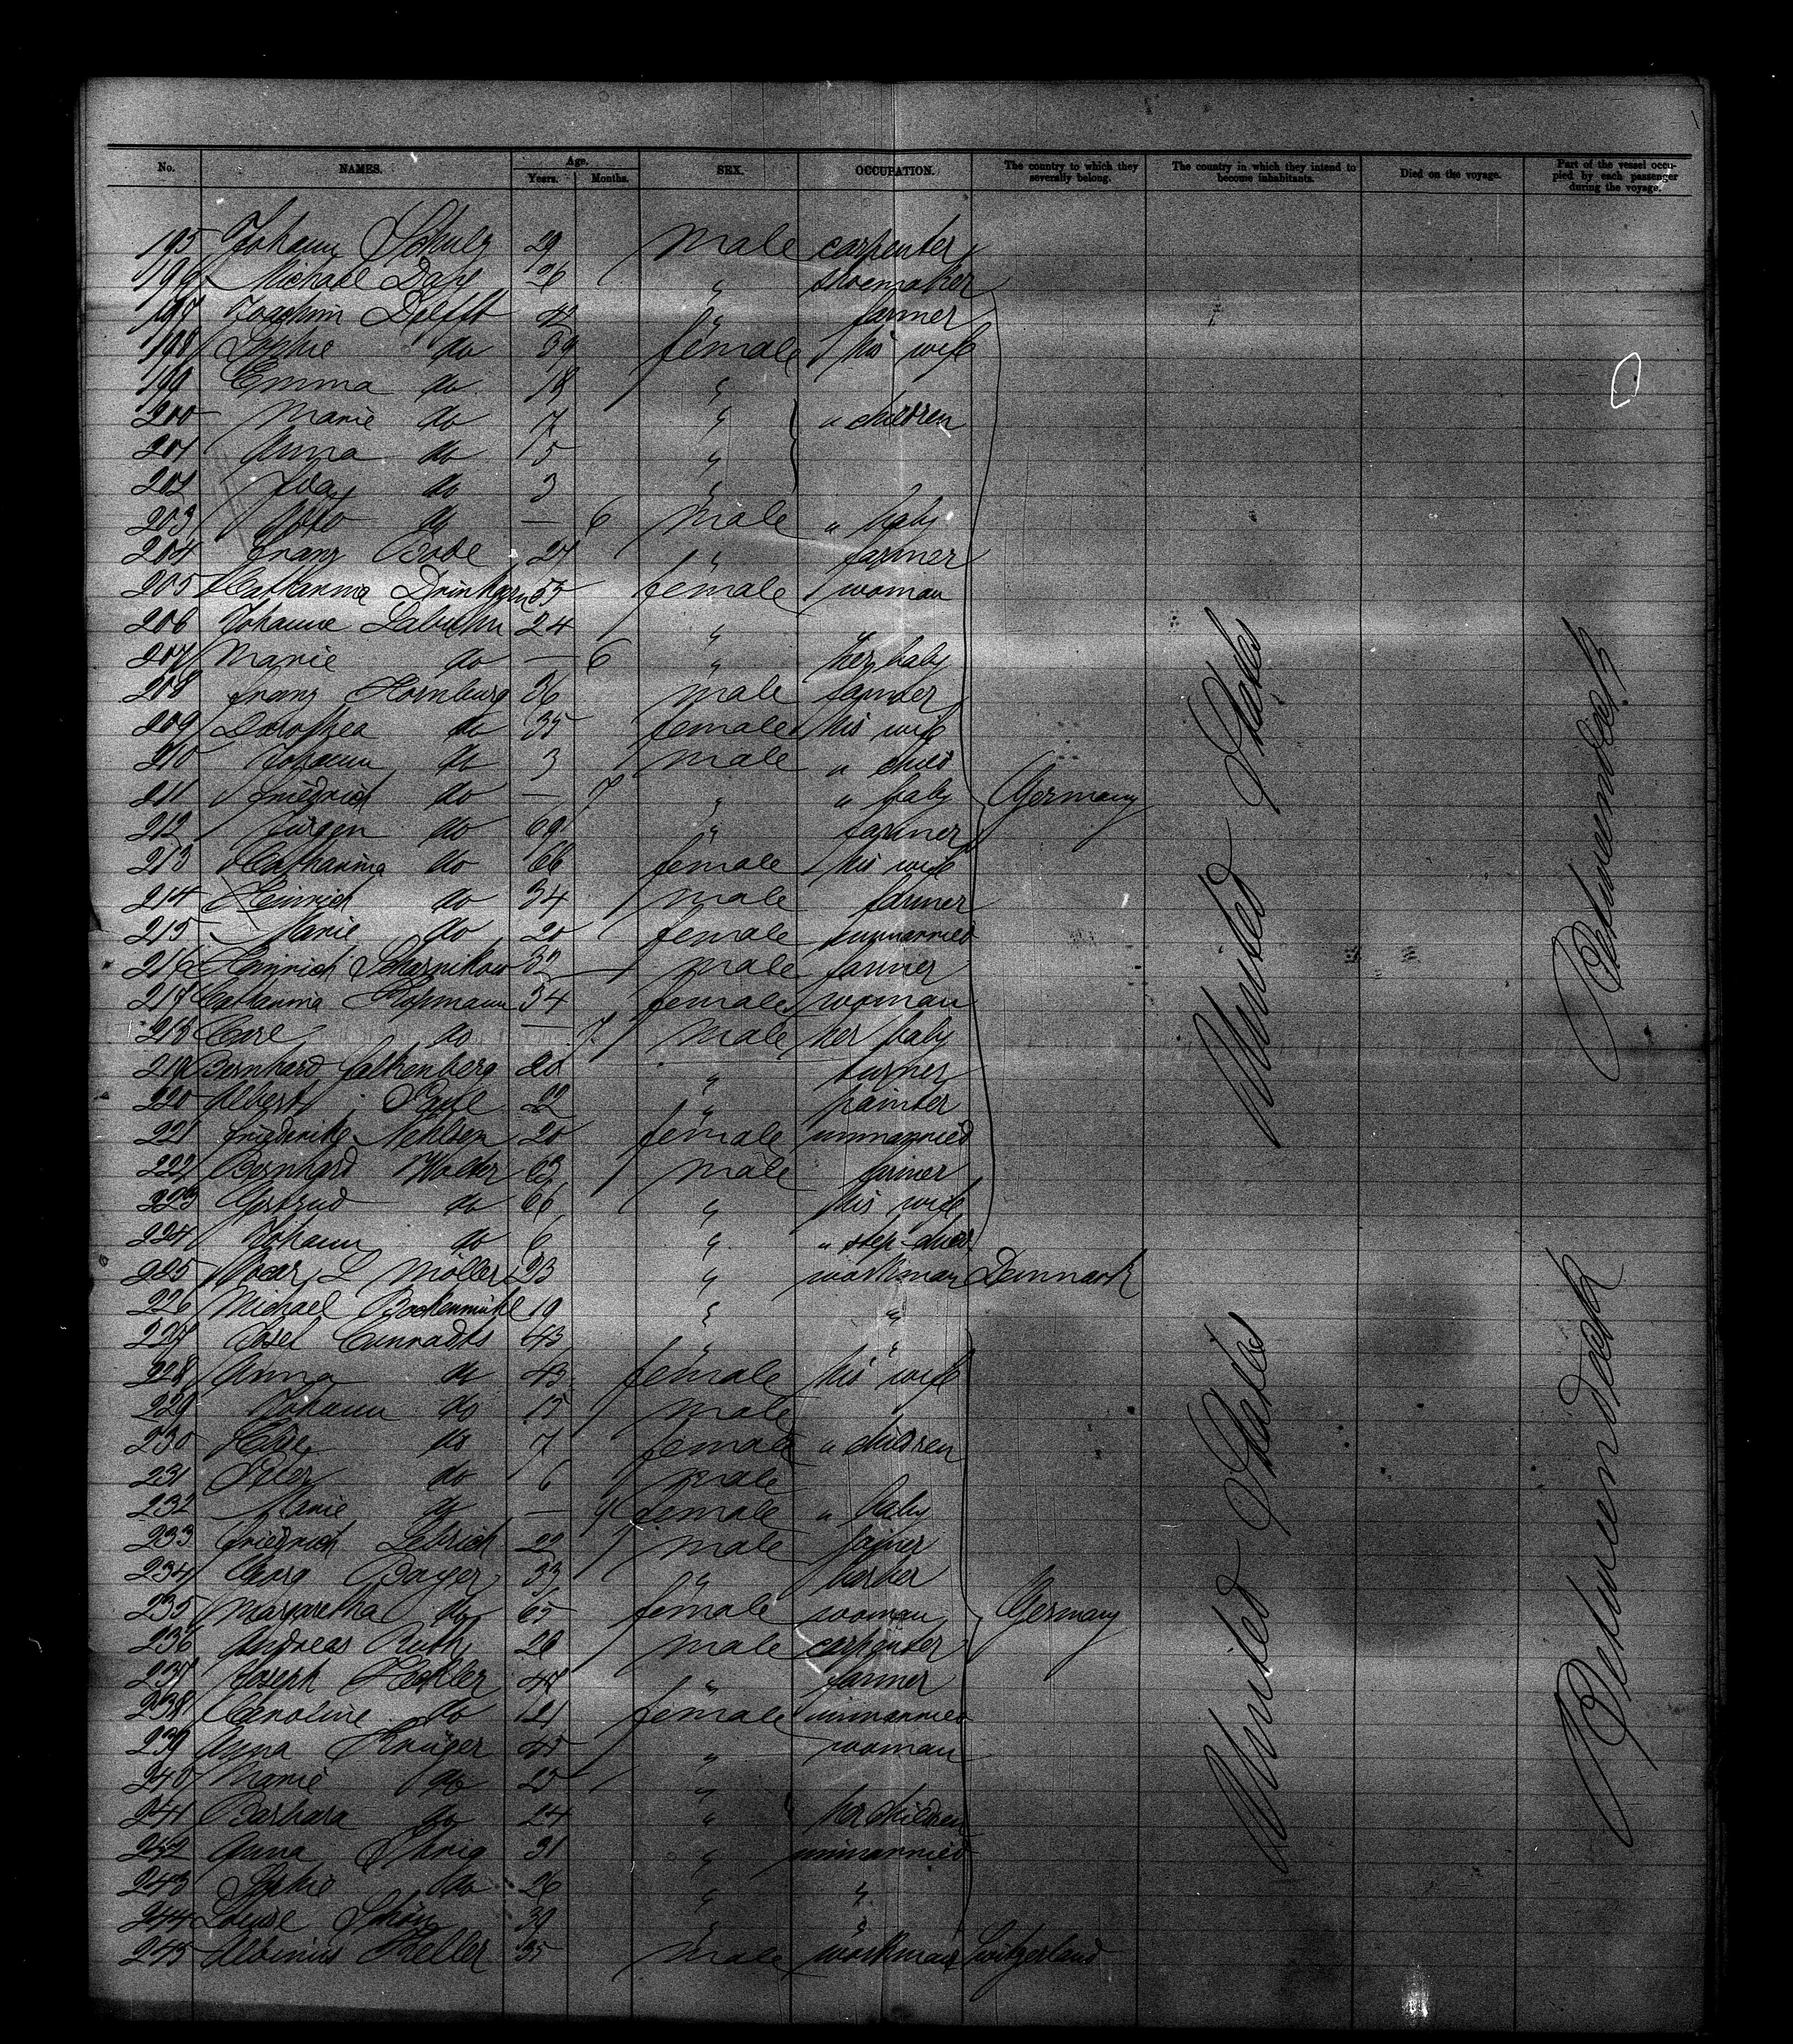 No. NAMES. Age. Years. Months. SEX. OCCUPATION. The country to which they severally belong. The country in which they intend to become inhabitants. Died on the voyage. Part of the vessel occupied by each passenger during the voyage.
195 Johann Schulz 29 male carpenter
196 Michael 26 " shoemaker
197 Joachim 42 " farmer
198 Sophie do 39 female his wife
199 Emma do 18 "
200 Marie do 7 " " children
201 Anna do 5 "
202 Ida do 3 "
203 Otto do — 6 male " baby
204 Franz Bode 27 " farmer
205 Catharina 55 female woman
206 Johanne 24 "
207 Marie do — 6 " her baby
208 Franz Hornburg 36 male farmer
209 Dorothea do 35 female his wife
210 Johann do 3 male " child
211 Friedrich do — 7 " " baby Germany
212 Jürgen do 69 " farmer
213 Catharina do 66 female his wife
214 Heinrich do 34 male farmer
215 Marie do 20 female unmarried
216 Heinrich Scharnikow 32 male farmer
217 Catharina 34 female woman
218 Carl do — 7 male her baby
219 Bernhard Falkenberg 20 " turner
220 Albert 22 " painter
221 Friederike Nehlsen 20 female unmarried
222 Bernhard Walter 63 male farmer
223 Gertrud do 66 " his wife
224 Johann do 6 " " step-child
225 Oscar L Möller 23 " workman Denmark
226 Michael Bockenmühl 19 " "
227 Josef Cunradts 43 " "
228 Anna do 43 female his wife
229 Johann do 15 male
230 do 7 female " children
231 Peter do 6 male
232 Marie do — female " baby
233 Friedrich 22 male joiner
234 Georg Bayer 33 " barber
235 Margaretha do 65 female woman Germany
236 Andreas Ruth 28 male carpenter
237 Joseph 47 " farmer
238 Caroline do 21 female unmarried
239 Anna Krüger 45 " woman
240 Marie do 25 "
241 Barbara do 24 " her children
242 Anna 31 " unmarried
243 Sophie do 26 " "
244 Louise Schön 39 " "
245 Albinus Keller 35 male workman Switzerland
United States
Betweendeck
United States
Betweendeck